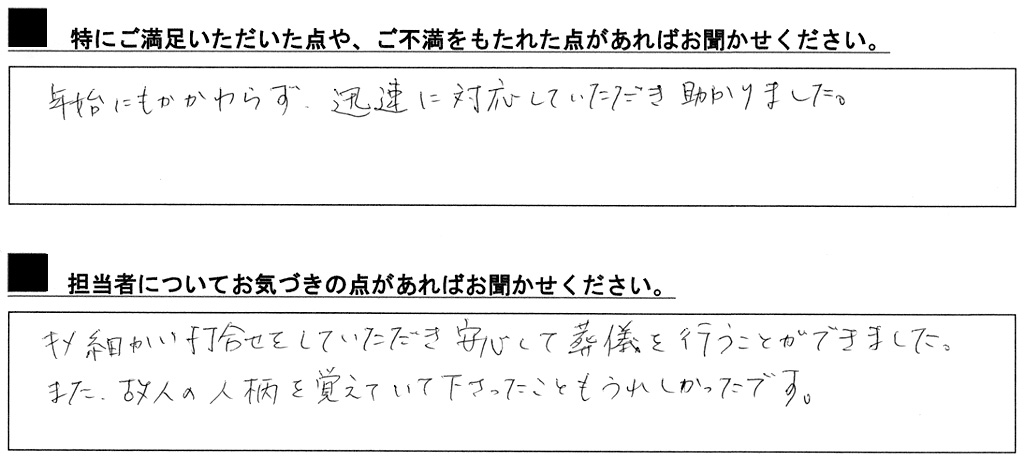 特にご満足いただいた点や、ご不満をもたれた点があればお聞かせください。
年始にもかかわらず、迅速に対応していただき助かりました。
担当者についてお気づきの点があればお聞かせください。
キメ細かい打合せをしていただき安心して葬儀を行うことができました。
また、故人の人柄を覚えていて下さったこともうれしかったです。